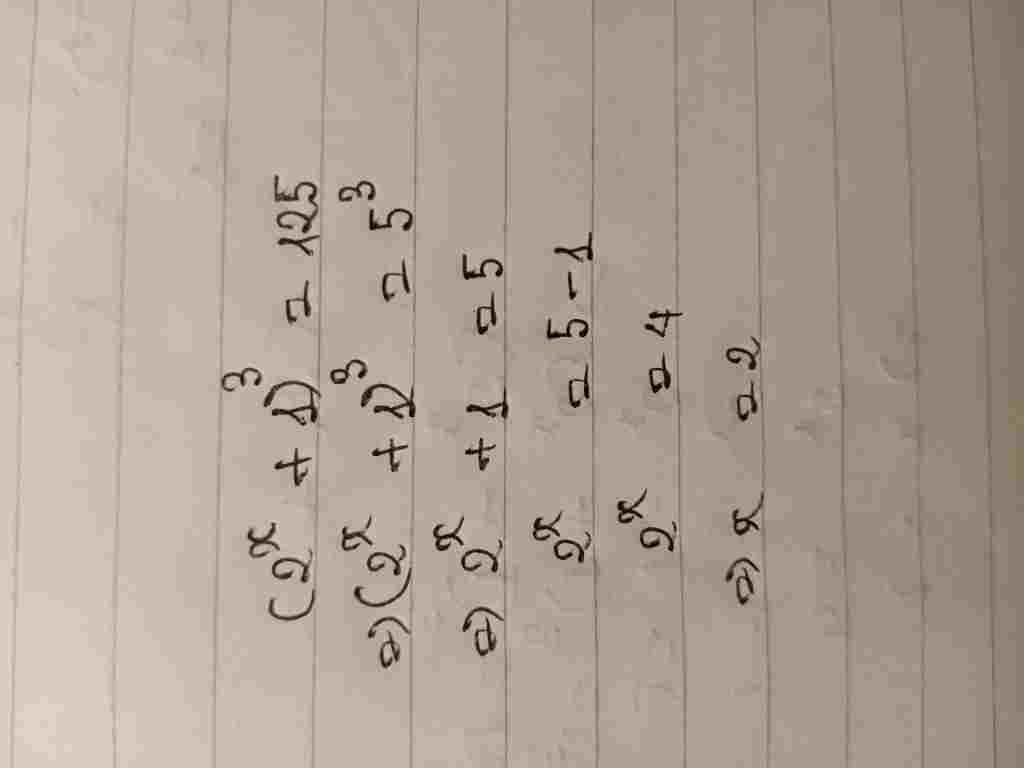 (2ˣ + 1)³ = 125
⇒ (2ˣ + 1)³ = 5³
⇒ 2ˣ + 1 = 5
2ˣ = 5 - 1
2ˣ = 4
⇒ x = 2